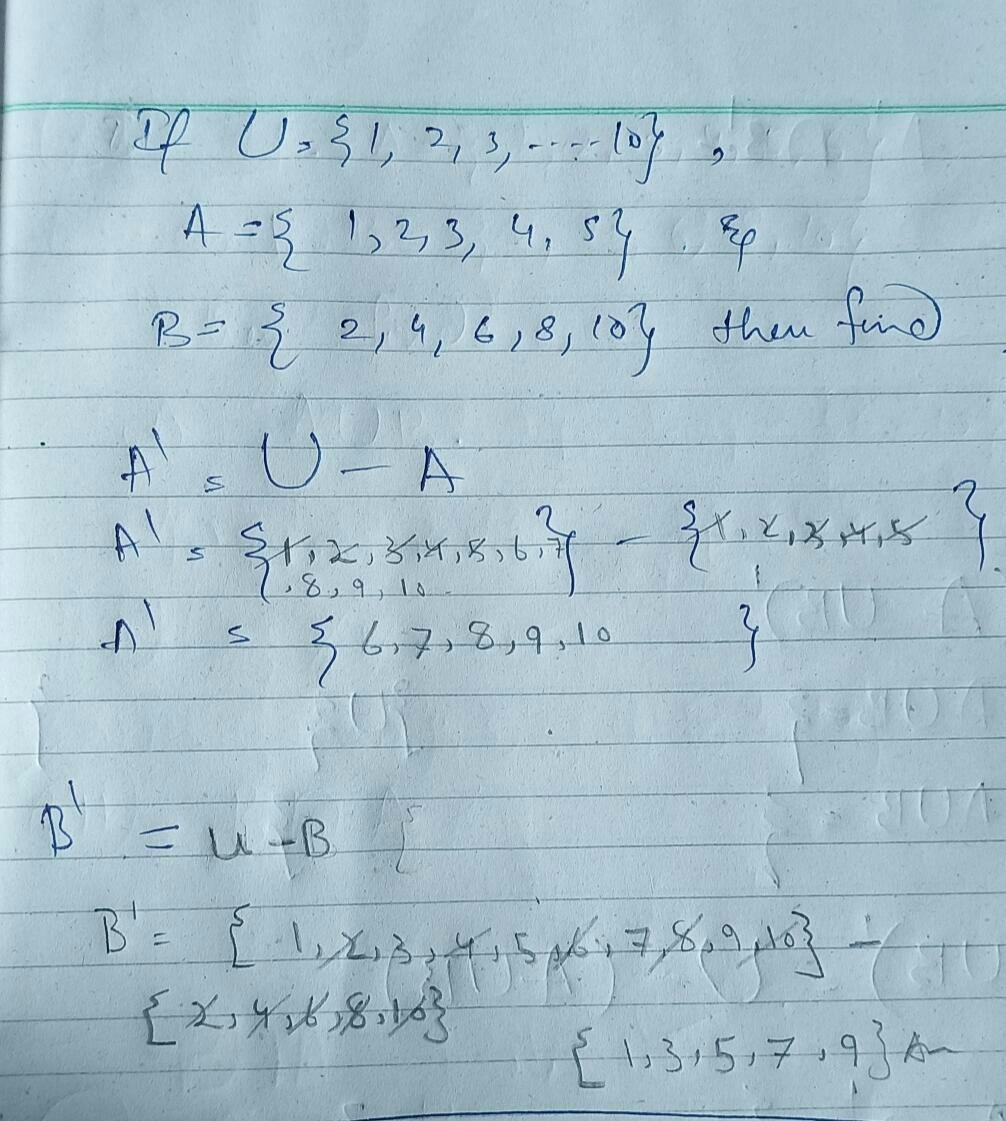 If U = {1, 2, 3, ----- 10},
A = { 1, 2, 3, 4, 5} &
B = { 2, 4, 6, 8, 10} then find
A' = U - A
A' = {1, 2, 3, 4, 5, 6, 7} - {1, 2, 3, 4, 5 }
, 8, 9, 10
A' = { 6, 7, 8, 9, 10 }
B' = U - B {
B' = { 1, 2, 3, 4, 5, 6, 7, 8, 9, 10} -
{ 2, 4, 6, 8, 10}
{ 1, 3, 5, 7, 9} An